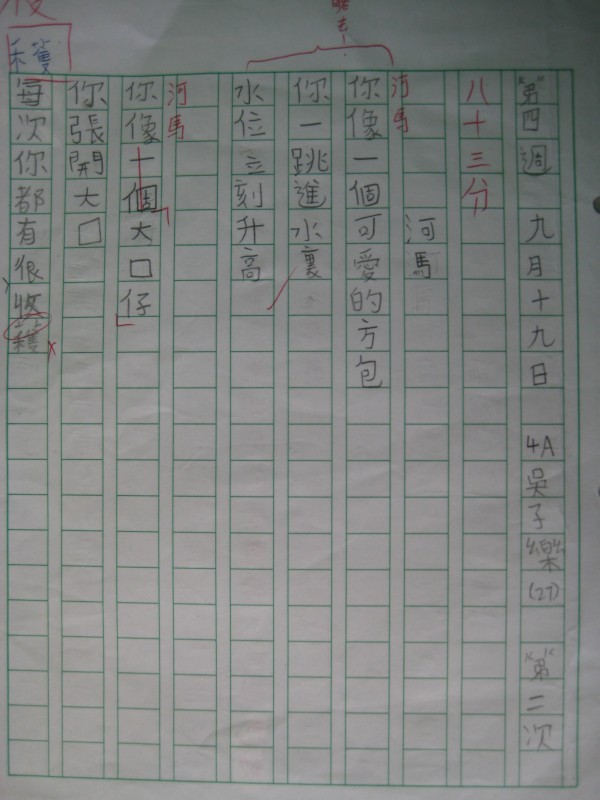 "第"四週 九月十九日 4A 吳子樂 (27) "第"二次
八十三分
河馬
河馬
你像一個可愛的方包
你一跳進水裏
水位立刻升高
河馬
你像一個大口仔
你張開大口
每次你都有很收
穫